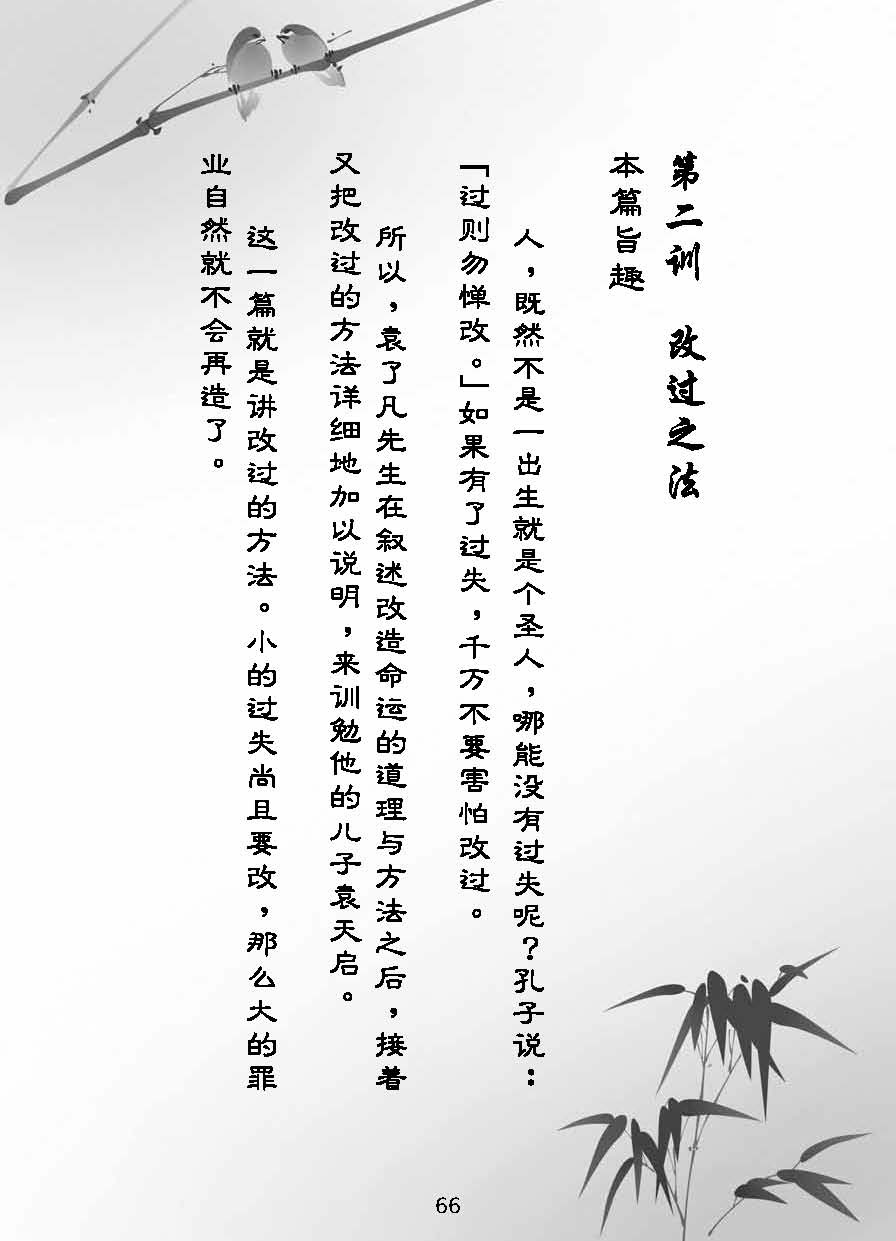 第二训　改过之法
本篇旨趣
人，既然不是一出生就是个圣人，哪能没有过失呢？孔子说：
「过则勿惮改。」如果有了过失，千万不要害怕改过。
所以，袁了凡先生在叙述改造命运的道理与方法之后，接着
又把改过的方法详细地加以说明，来训勉他的儿子袁天启。
这一篇就是讲改过的方法。小的过失尚且要改，那么大的罪
业自然就不会再造了。
66